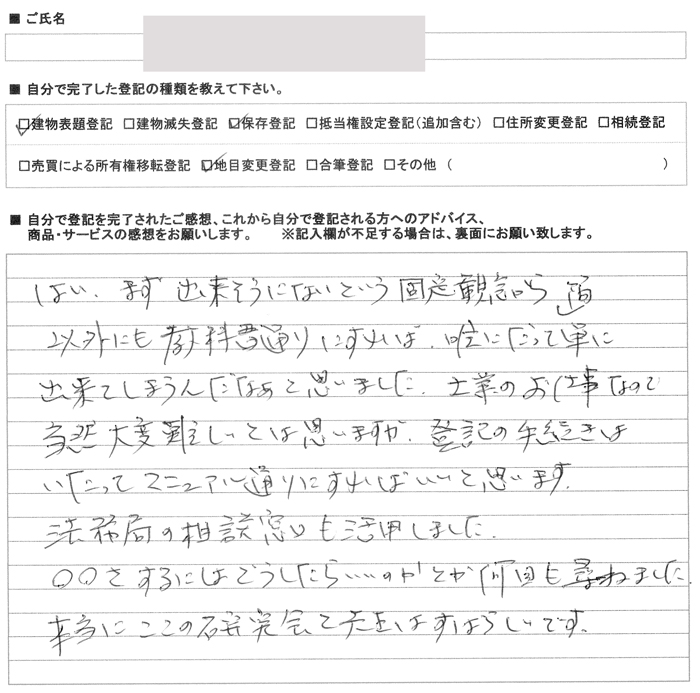 ■ ご氏名
■ 自分で完了した登記の種類を教えて下さい。
□建物表題登記 □建物滅失登記 □保存登記 □抵当権設定登記(追加含む) □住所変更登記 □相続登記
□売買による所有権移転登記 □地目変更登記 □合筆登記 □その他 ( )
■ 自分で登記を完了されたご感想、これから自分で登記される方へのアドバイス、
商品・サービスの感想をお願いします。 ※記入欄が不足する場合は、裏面にお願い致します。
はい、まず出来そうにないという固定観念から
以外にも教科書通りにすれば、 にたって単に
出来てしまうんだなあと思いました。士業のお仕事なので
当然大変難しいとは思いますが、登記の手続きは
いたってマニュアル通りにすればいいと思います。
法務局の相談窓口も活用しました。
〇〇をするにはどうしたらいいのかとか何回も尋ねました。
本当にここの研究会と先生はすばらしいです。